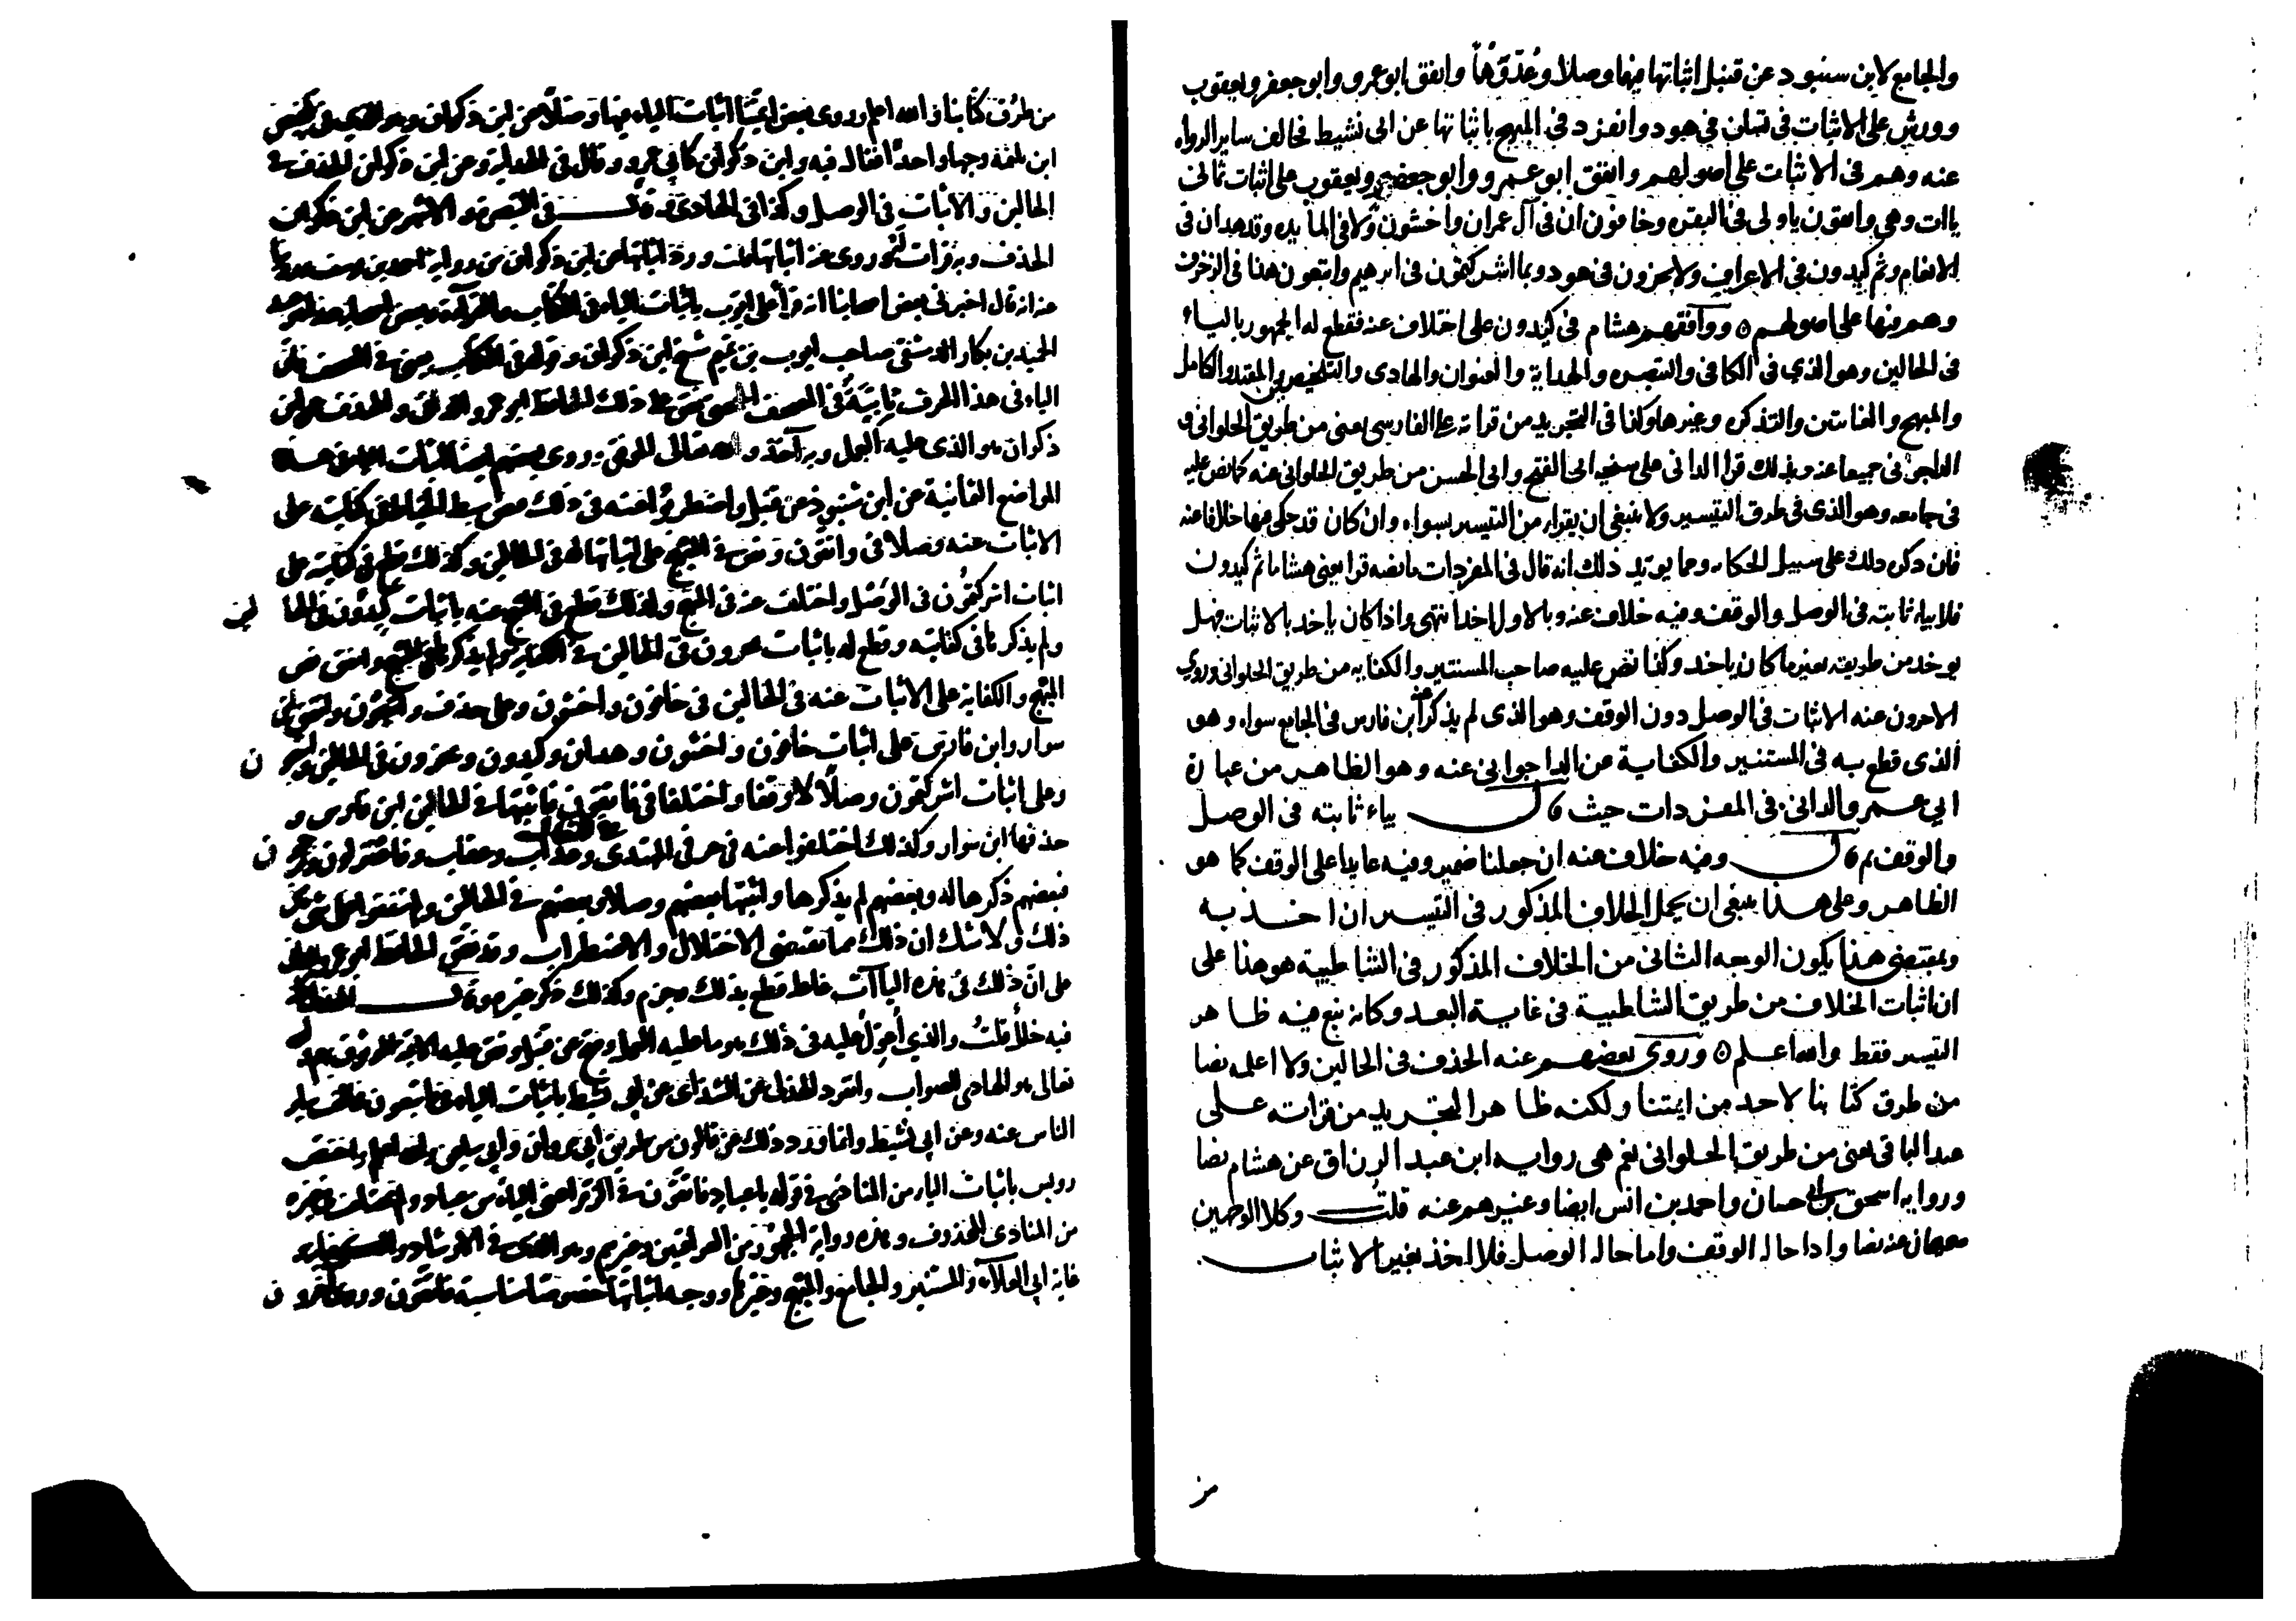 والجامع لابن سنبود عن قنبل اثباتها فيها وصلا وحذفها واتفق ابو عمرو وابو جعفر ويعقوب
وورش على الاثبات في تسالن في هود وانفرد في المبهج باثباتها عن ابى نشيط فخالف ساير الرواه
عنه وهم في الاثبات على اصولهم واتفق ابو عمرو وابو جعفر ويعقوب على اثبات ثماني
ياات وهي واتقون ياولى فى البقره وخافون ان فى آل عمران واخشون ولا فى المايده وقد هدان فى
الانعام وثم كيدون فى الاعراف ولا تخزون فى هود وبما اشركتمون فى ابرهيم واتبعون هذا فى الزخرف
وهم فيها على اصولهم ٥ ووافقهم هشام فى كيدون على اختلاف عنه فقطع له الجمهور بالياء
فى الحالين وهو الذي فى الكافى والتبصره والهداية والعنوان والهادى والتلخيص والمفيد والكامل
والمبهج والغايتين والتذكره وغيرها وكذا فى التجريد من قراته على الفارسى يعنى من طريق الحلوانى و
الداجونى جميعا عنه وبذلك قرا الدانى على شيخه ابى الفتح وابى الحسن من طريق الحلوانى عنه كما نص عليه
فى جامعه وهو الذى فى طرق التيسير ولا ينبغى ان يقرا من التيسير بسواه وان كان قد حكى فيها خلافا عنه
فان ذكره ذلك على سبيل الحكايه ومما يويد ذلك انه قال فى المفردات ما نصه قرا يعنى هشاما ثم كيدون
فلا بياء ثابته فى الوصل والوقف وفيه خلاف عنه وبالاول اخذ انتهى واذا كان ياخذ بالاثبات فهل
يوخذ من طريقه بغير ما كان ياخذ وكذا نص عليه صاحب المستنير والكفايه من طريق الحلوانى وروي
الاخرون عنه الاثبات فى الوصل دون الوقف وهو الذى لم يذكر عنه ابن فارس فى الجامع سواه وهو
الذى قطع به فى المستنير والكفاية عن الداجونى عنه وهو الظاهر من عبارة
ابي عمرو الدانى فى المفردات حيث قال بياء ثابته فى الوصل
والوقف ثم قال وفيه خلاف عنه ان جعلنا ضمير وفيه عايدا على الوقف كما هو
الظاهر وعلى هذا ينبغى ان يحمل الخلاف المذكور فى التيسير ان اخذ به
وبمقتضى هذا يكون الوجه الثانى من الخلاف المذكور فى الشاطبية هو هذا على
ان اثبات الخلاف من طريق الشاطبية فى غاية البعد وكانه تبع فيه ظاهر
التيسير فقط والله اعلم ٥ وروى بعضهم عنه الحذف فى الحالين ولا اعلمه نصا
من طرق كتابنا لاحد من ايمتنا ولكنه ظاهر التجريد من قراته على
عبد الباقى يعنى من طريق الحلوانى نعم هى رواية ابن عبد الرزاق عن هشام نصا
ورواية اسحق بن ابى حسان واحمد بن انس ايضا وغيرهم عنه قلت وكلا الوجهين
صحيحان عنه نصا واداء حالة الوقف واما حالة الوصل فلا اخذ بغير الاثبات
من
من طرف كتابنا والله اعلم وروى بعض ايمتنا اثبات الياء فيها وصلا عن ابن ذكوان وهو الذى فى تلخيص
ابن بليمة وجها واحدا فقال فيه وابن ذكوان كابي عمرو وقال فى الهداية وعن ابن ذكوان الحذف فى
الحالين والاثبات فى الوصل وكذا فى الهادى وقال فى التبصرة والاشهر عن ابن ذكوان
الحذف وبه قرات له وروى عنه اثباتها قلت ورد اثباتها عن ابن ذكوان من رواية احمد بن يوسف
عنه انه قال اخبرنى بعض اصحابنا انه قرا على ايوب باثبات الياء فى الكتاب والقراءة وبعض اصحابه هو عبد
الحميد بن بكار الدمشقى صاحب ايوب بن تميم شيخ ابن ذكوان وقوله فى الكتاب يعنى فى المصحف فان
الياء فى هذا الحرف ثابتة فى المصحف الحمصى نص على ذلك الحافظ ابو عمرو الدانى والحذف عن ابن
ذكوان هو الذى عليه العمل وبه آخذ والله تعالى الموفق وروى بعضهم ايضا اثبات الياء فى هذه
المواضع الثمانية عن ابن شنبوذ عن قنبل واضطربوا عنه فى ذلك فنص سبط الخياط فى كفايته على
الاثبات عنه وصلا فى واتقون ونص فى المبهج على اثباتها له فى الحالين وكذلك قطع فى كفايته على
اثبات اشركتمون فى الوصل واختلف عنه فى المبهج وكذلك قطع فى المبهج عنه باثبات كيدون فى الحالين
ولم يذكرها فى كفايته وقطع له باثبات تخزون فى الحالين فى الكفاية ولم يذكرها فى المبهج واتفق نص
المبهج والكفاية على الاثبات عنه فى الحالين فى خافون واخشون وعلى حذف واتبعون واتفق ابن
سوار وابن فارس على اثبات خافون واخشون وهدان وكيدون وتخزون فى الحالين
وعلى اثبات اشركتمون وصلا لا وقفا واختلفا فى فاتقون فاثبتها فى الحالين ابن فارس و
حذفها ابن سوار وكذلك اختلفوا عنه فى حرفى المهتدى وعذاب وعقاب وفاعتزلون
فبعضهم ذكرها له وبعضهم لم يذكرها واثبتها بعضهم وصلا وبعضهم فى الحالين ولم يتفقوا على شى من
ذلك ولا شك ان ذلك مما يقتضى الاختلال والاضطراب وقد نص الحافظ ابو عمرو الدانى
على ان ذلك فى هذه الياآت غلط قطع بذلك وجزم وكذلك ذكر غيره وقال الهذلى
فيه خلل قلت والذي اعول عليه فى ذلك هو ما عليه العمل وصح عن قنبل ونص عليه الايمة الموثوق بهم والله
تعالى هو الهادى للصواب وانفرد الهذلى عن الشذائى عن ابى نشيط باثبات الياء فى اتبعون فخالف ساير
الناس عنه وعن ابى نشيط وانما ورد ذلك عن قالون من طريق ابى مروان وابى سليمن والله اعلم واختص
رويس باثبات الياء من المنادى فى قوله يا عباد فاتقون فى الزمر اعنى الياء من عباد
من المنادى المحذوف وهذه رواية الجمهور من العراقيين وغيرهم وهو الذى فى الارشاد و
غاية ابى العلاء والمستنير والجامع والمبهج وغيرها ووجه اثباتها خصوصا مناسبة فاتقون